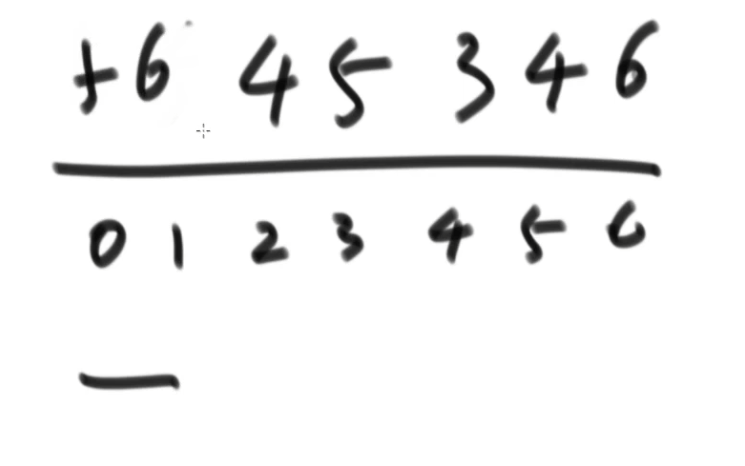 6 4 5 3 4 6
0 1 2 3 4 5 6